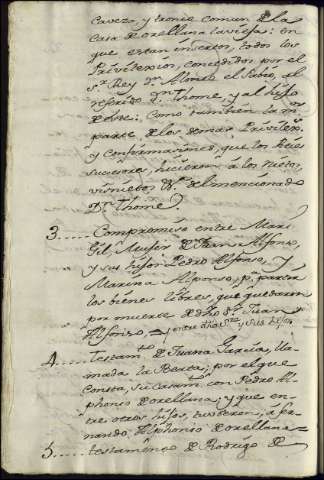 cavezo, y tronco comun de la
Casa de orellana la viesa: en
que estan insertos, todos los
Privilexios, concedidos por el
Sr. Rey Dn. Alonso el Sabio, al
referido Dn. Thome, y al hijo
de este: Como tambien la mor.
parte de los demas Privilex.
y confirmaziones, que los Reies
sucesores, hicieron a los nietos,
visnietos, &a. del mencionado
Dn. Thome
3..... Compromiso entre Mari
Gil, Muger de Juan Alfonso,
y sus hijos Pedro Alfonso, y
Marina Alfonso, pa. partir
los bienes libres, que quedaron
por muerte de dho Sr. Juan
Alfonso = entre dha Sra. y sus hijos
4..... Testamto. de Juana Garcia, lla-
mada la Beata; por el que
consta, su casamto. con Pedro Al-
phonso de orellana; y que en-
tre otros hijos, tuvieron, a fer-
nando Alphonso de orellana =
5..... testamento de Rodrigo de